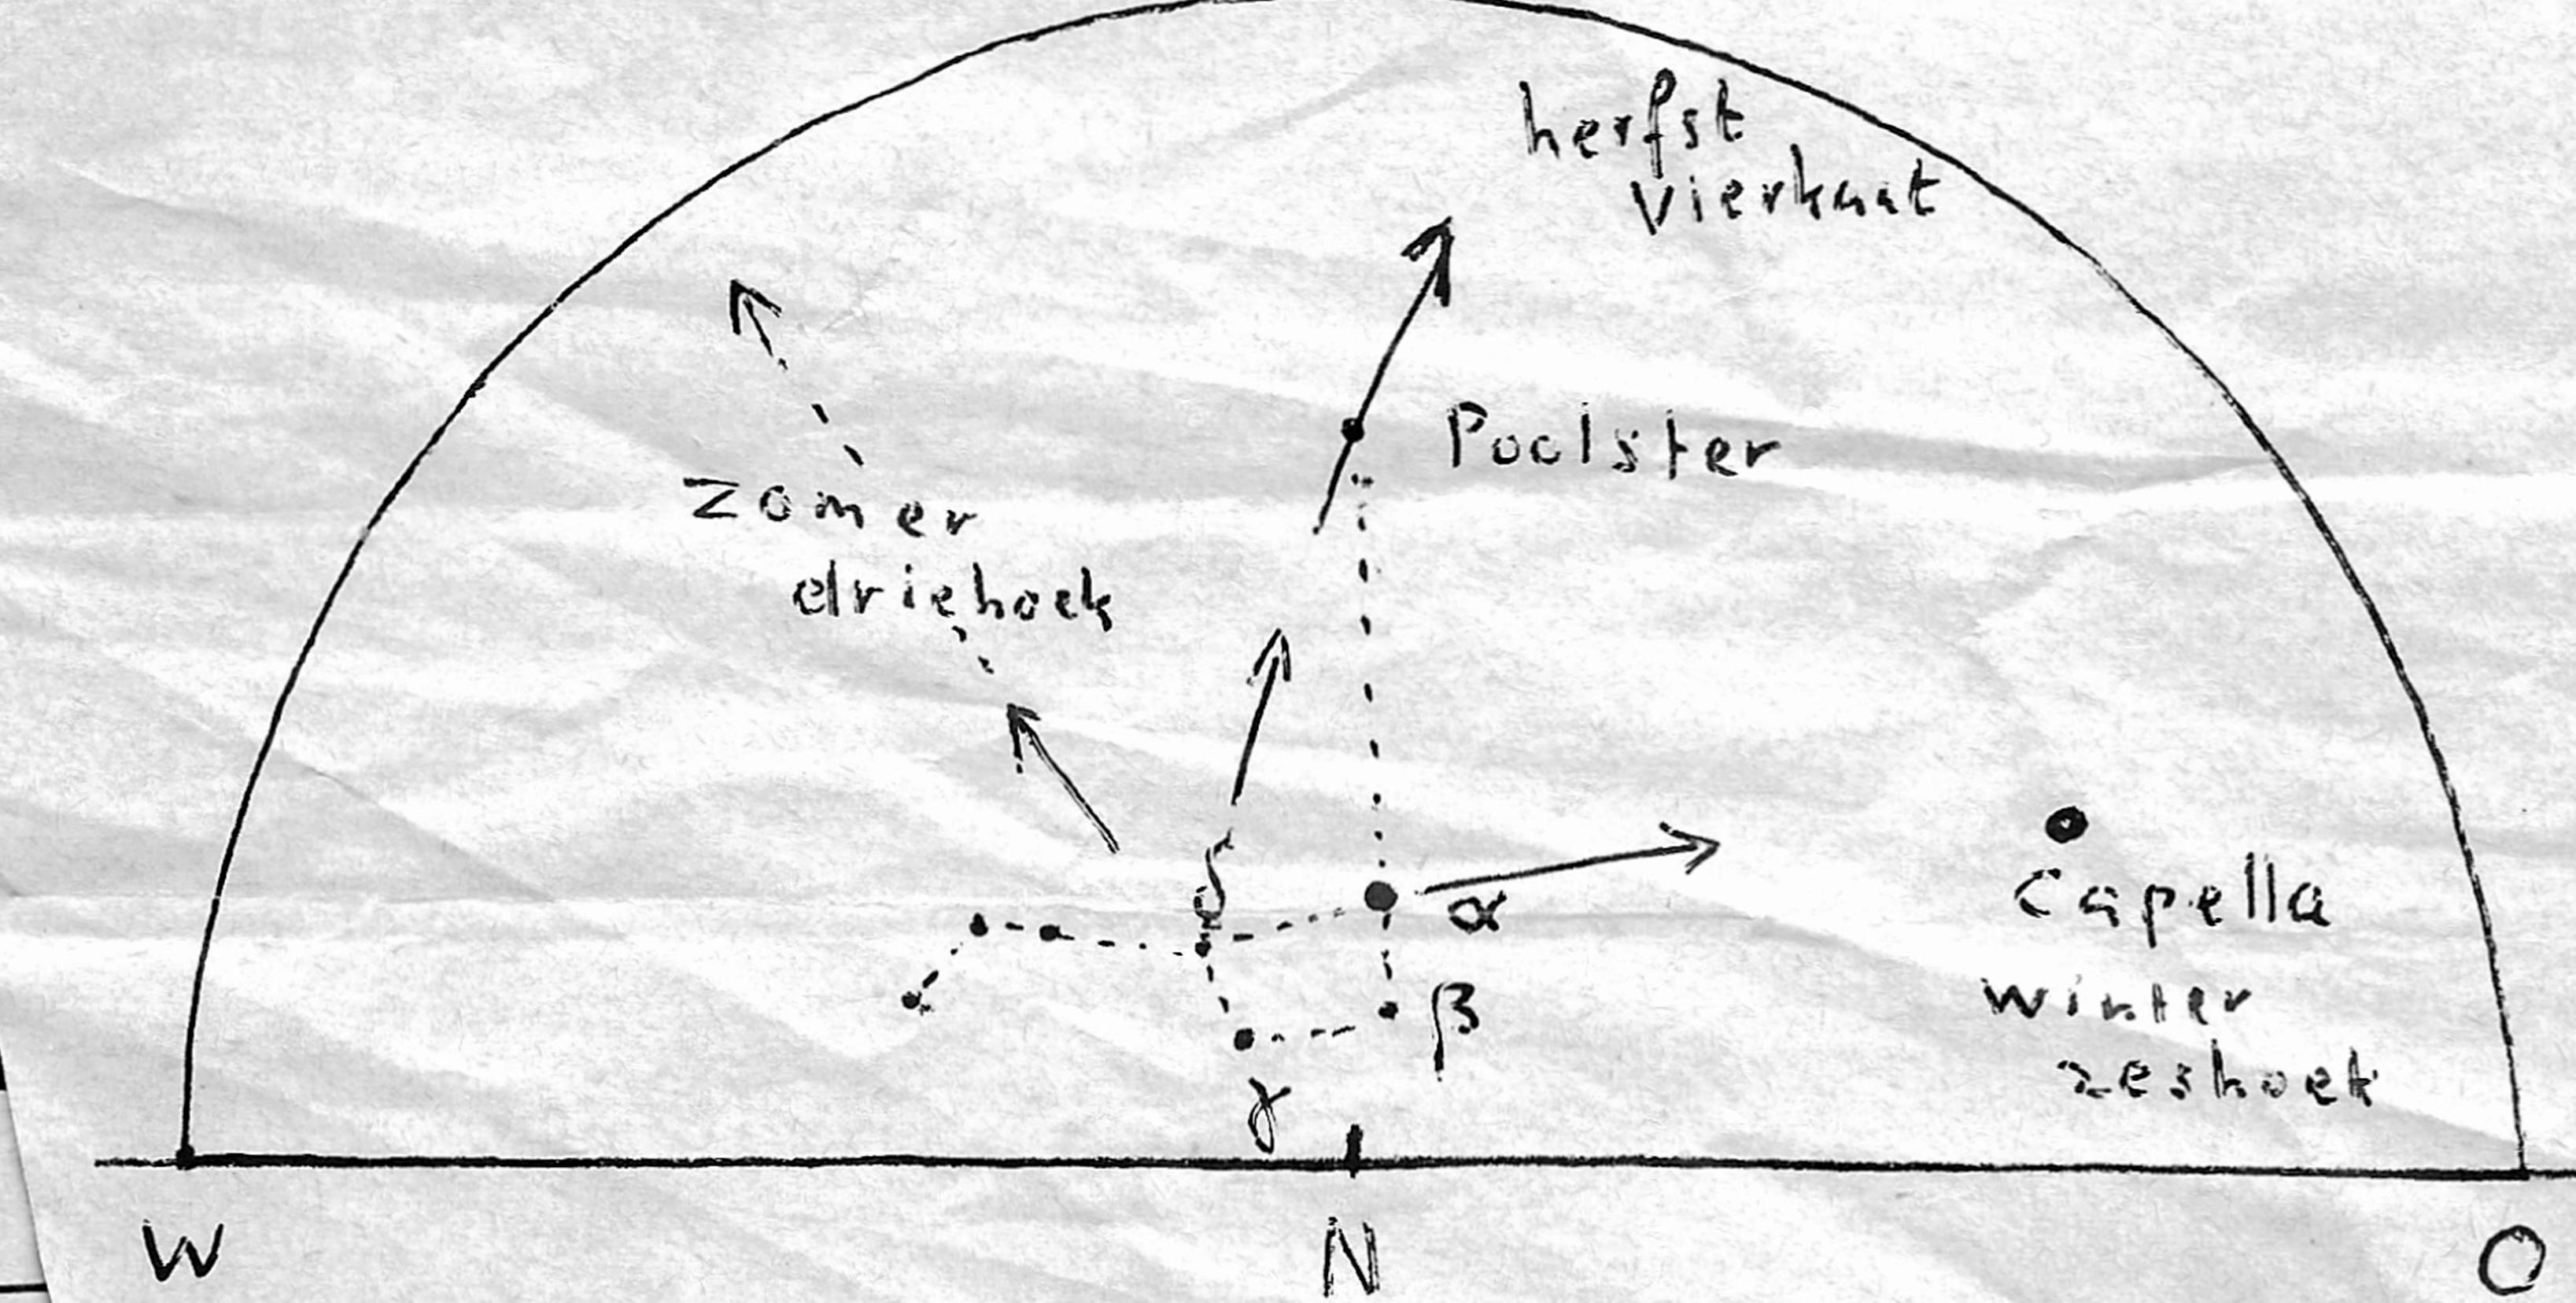 herfst
vierkant
Poolster
zomer
driehoek
δ
α
Capella
β
winter
zeshoek
γ
W N O